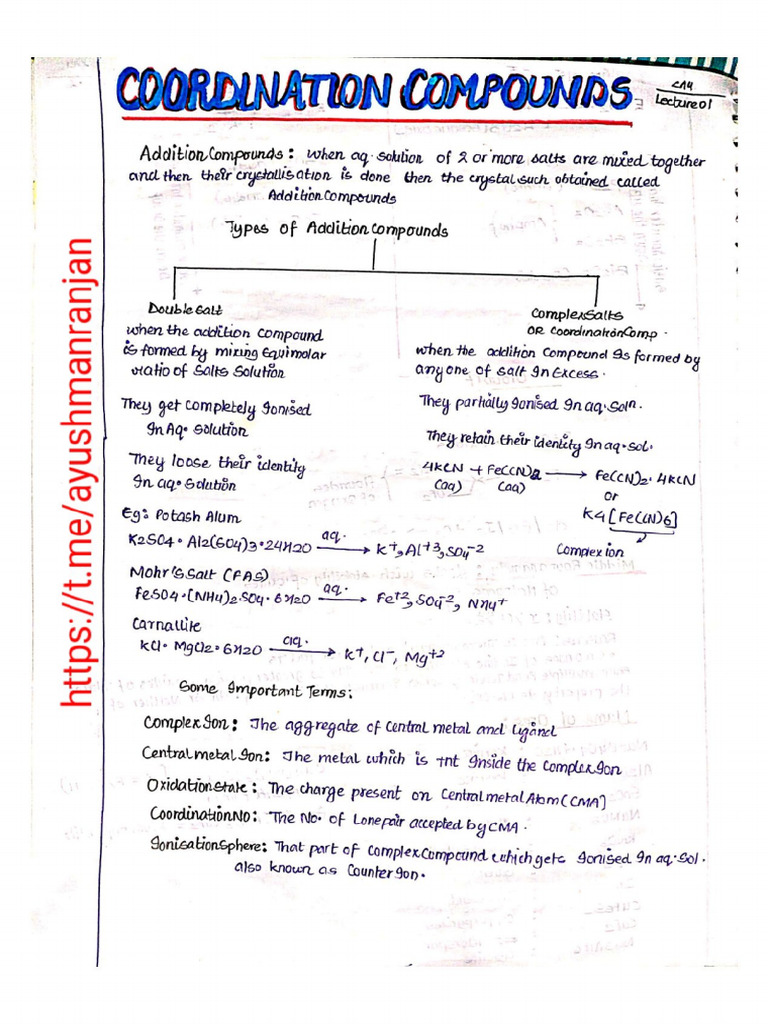 COORDINATION COMPOUNDS
CH4
Lecture 01
Addition Compounds: when aq. solution of 2 or more salts are mixed together
and then their crystallisation is done then the crystal such obtained called
Addition Compounds
Types of Addition Compounds
Double Salt
when the addition compound
is formed by mixing Equimolar
ratio of Salts Solution
They get completely Ionised
In Aq. solution
They loose their identity
In aq. Solution
Eg: Potash Alum
K2SO4·Al2(SO4)3·24H2O aq. → K+, Al+3, SO4-2
Mohr's Salt (FAS)
FeSO4·(NH4)2SO4·6H2O aq. → Fe+2, SO4-2, NH4+
Carnallite
KCl·MgCl2·6H2O aq. → K+, Cl-, Mg+2
Complex Salts
OR Coordination Comp.
when the addition Compound Is formed by
any one of salt In Excess.
They partially Ionised In aq. Soln.
They retain their identity In aq. Sol.
4KCN + Fe(CN)2 → Fe(CN)2·4KCN
(aq) (aq)
or
K4[Fe(CN)6]
Complex ion
Some Important Terms:
Complex Ion: The aggregate of Central metal and ligand
Central metal Ion: The metal which is +nt Inside the Complex Ion
Oxidation State: The charge present on Central metal Atom (CMA)
Coordination No: The No. of Lone pair accepted by CMA.
Ionisation Sphere: That part of Complex Compound which gets Ionised In aq. Sol.
also known as Counter Ion.
https://t.me/ayushmanranjan